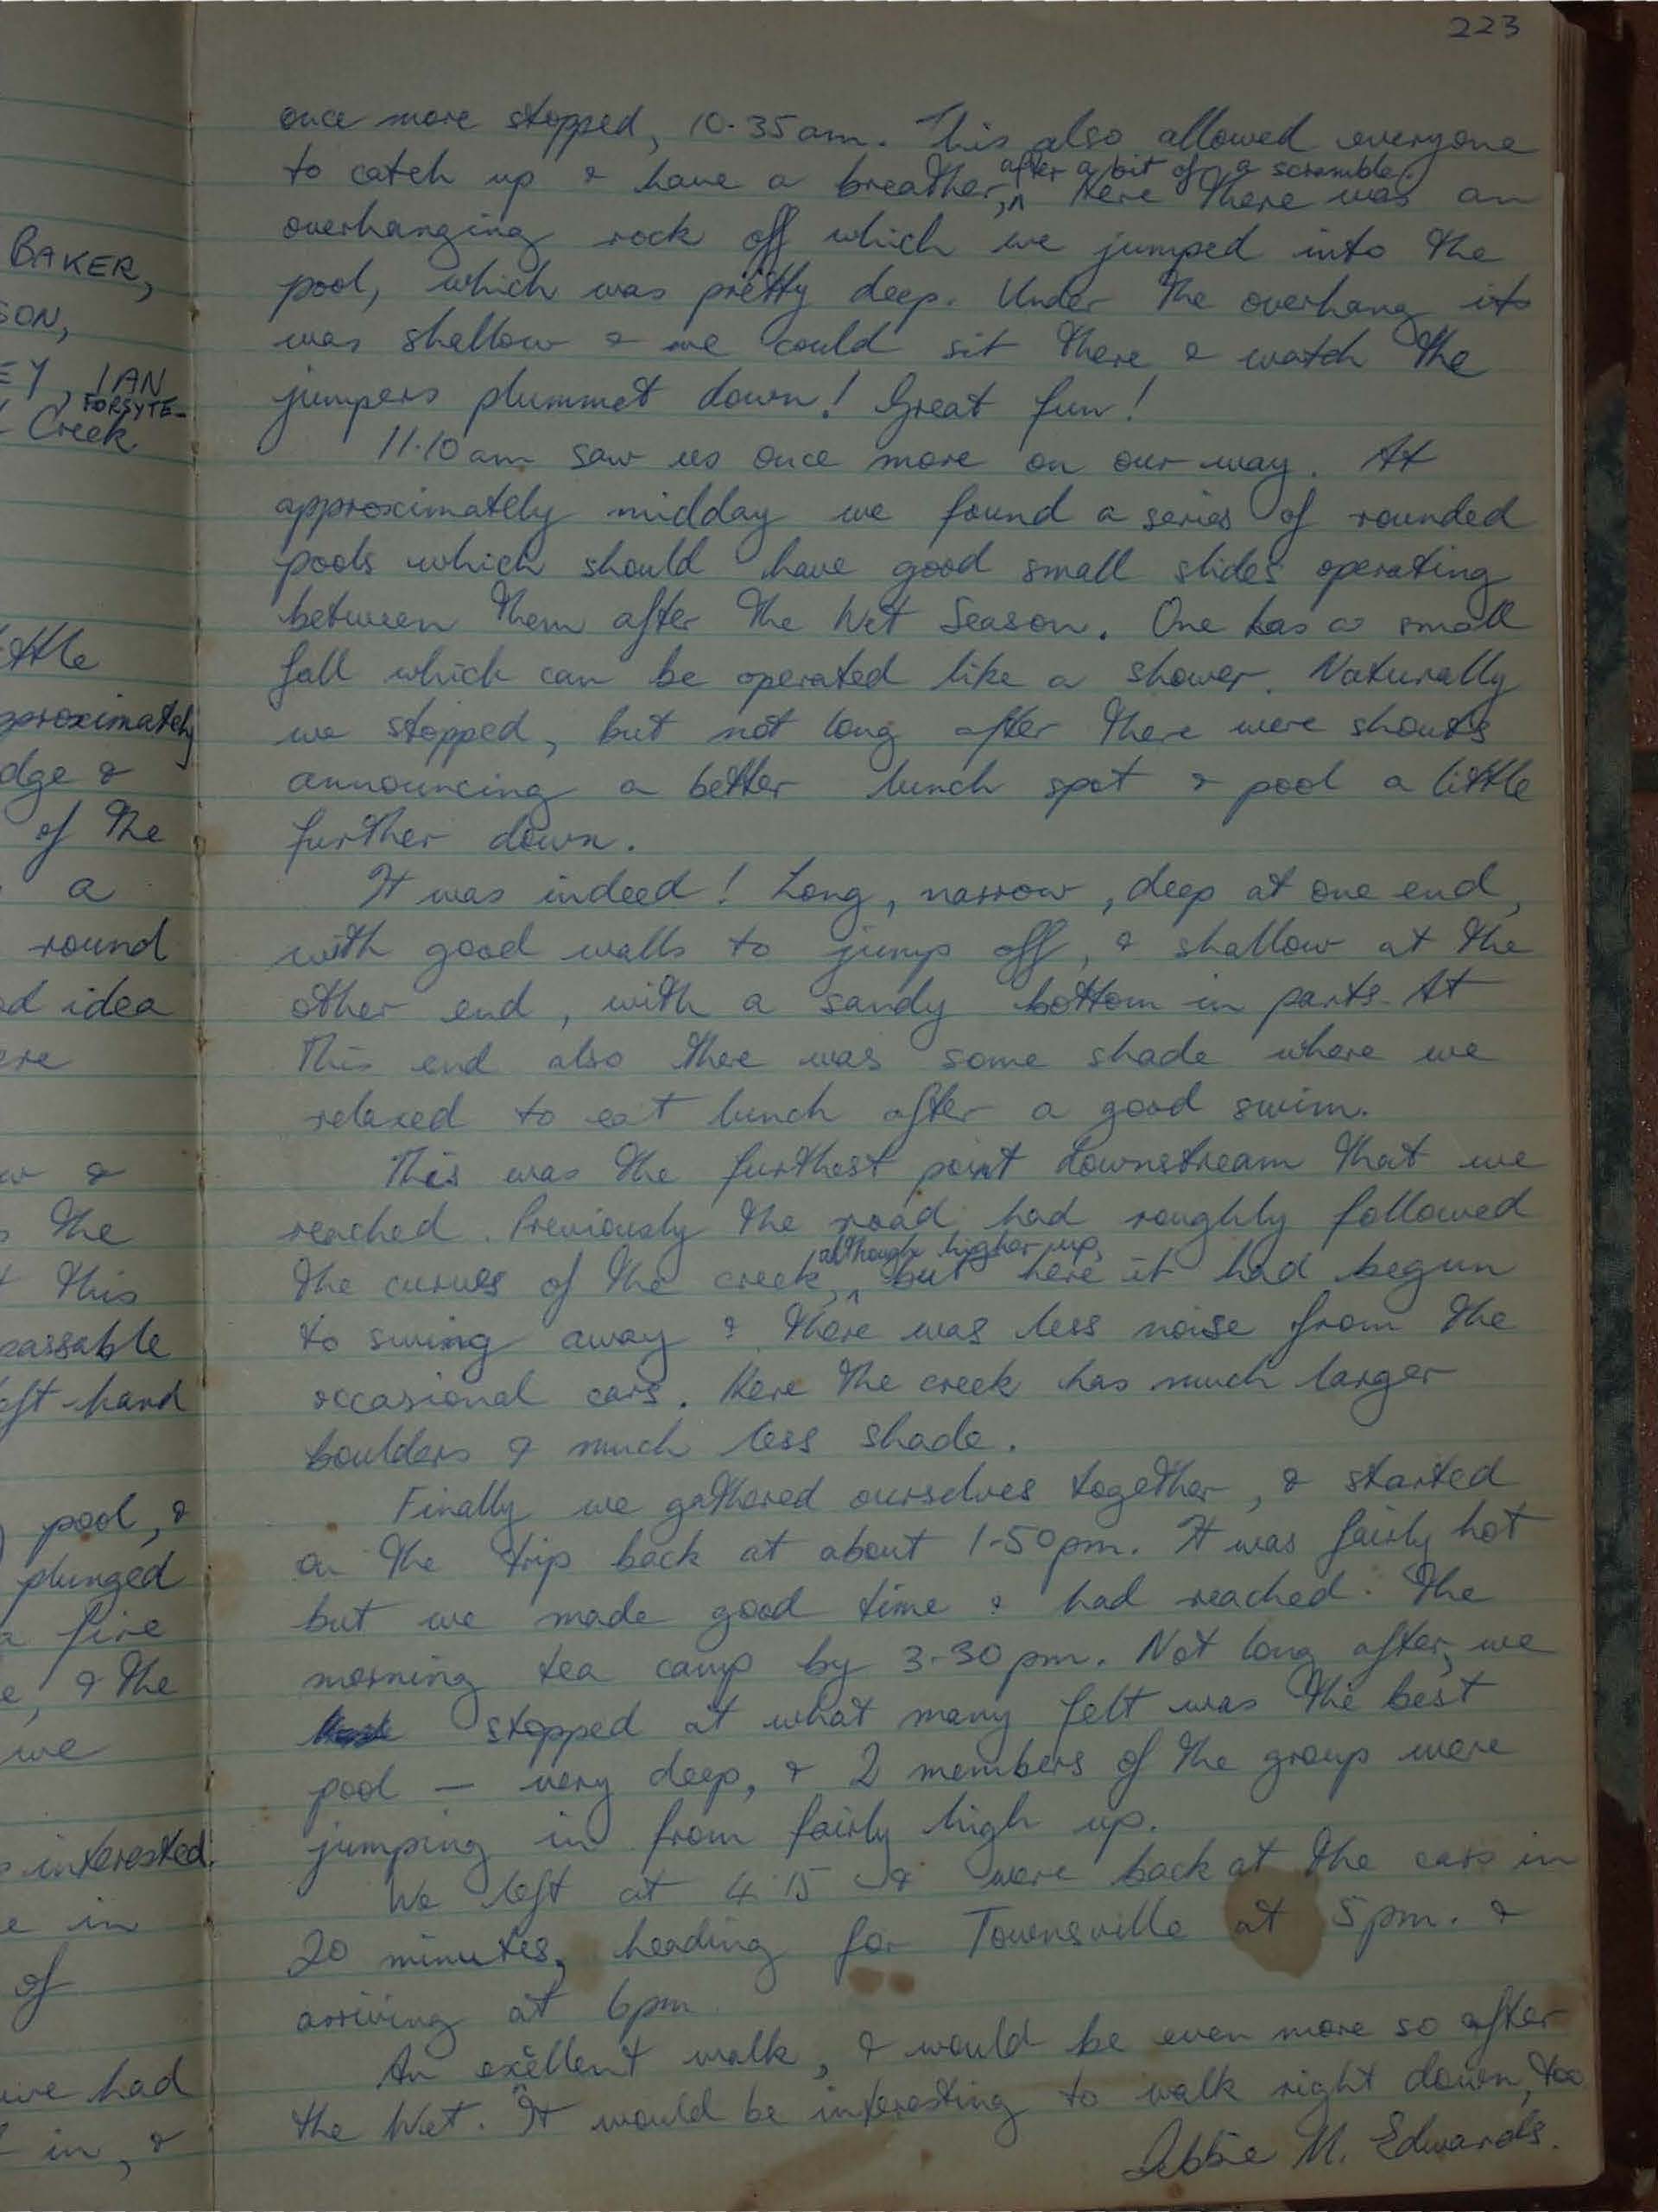 BAKER,
SON,
EY, IAN
FORSYTE-
Creek
ttle
pproximately
dge &
of the
a
round
d idea
ere
w &
the
this
passable
eft-hand
pool, &
plunged
a fire
e, & the
we
interested.
e in
of
we had
in, &
223
once more stopped, 10.35am. This also allowed everyone
after a bit of a scramble.
to catch up & have a breather,^ Here there was an
overhanging rock off which we jumped into the
pool, which was pretty deep. Under the overhang it
was shallow & we could sit there & watch the
jumpers plummet down! Great fun!
11.10am saw us once more on our way. At
approximately midday we found a series of rounded
pools which should have good small slides operating
between them after the Wet Season. One has a small
fall which can be operated like a shower. Naturally
we stopped, but not long after there were shouts
announcing a better lunch spot & pool a little
further down.
It was indeed! Long, narrow, deep at one end,
with good walls to jump off, & shallow at the
other end, with a sandy bottom in parts. At
this end also there was some shade where we
relaxed to eat lunch after a good swim.
This was the furthest point downstream that we
reached. Previously the road had roughly followed
although higher up,
the curves of the creek,^ but here it had begun
to swing away & there was less noise from the
occasional cars. Here the creek has much larger
boulders & much less shade.
Finally we gathered ourselves together, & started
on the trip back at about 1-50pm. It was fairly hot
but we made good time & had reached the
morning tea camp by 3-30pm. Not long after, we
stopped at what many felt was the best
pool — very deep, & 2 members of the group were
jumping in from fairly high up.
We left at 4.15 & were back at the cars in
20 minutes, heading for Townsville at 5pm. &
arriving at 6pm
An excellent walk, & would be even more so after
the Wet. It would be interesting to walk right down, too
Debbie M. Edwards.